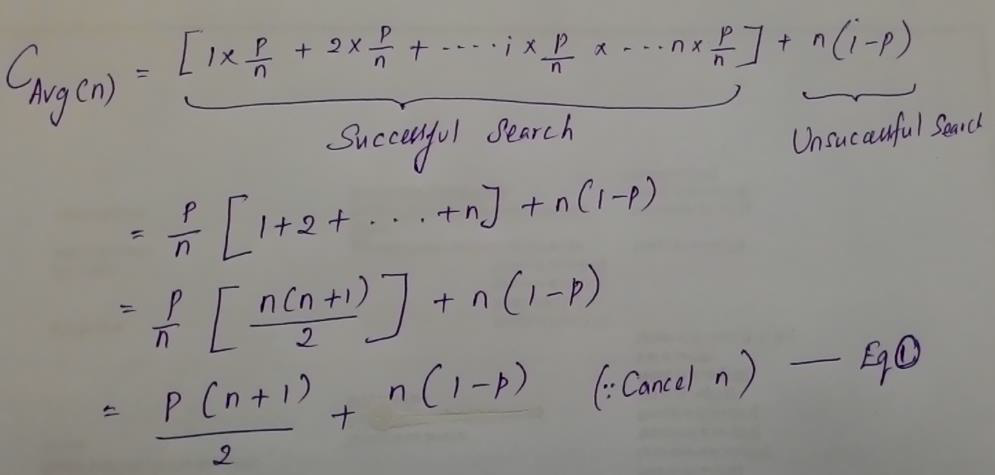 C_Avg(n) = [1 × p/n + 2 × p/n + ----· i × p/n × - ··· n × p/n] + n(1-p)
Successful Search Unsuccessful Search
= p/n [1 + 2 + · · · + n] + n(1-p)
= p/n [n(n+1)/2] + n(1-p)
= p(n+1)/2 + n(1-p) (∵ Cancel n) — Eq①